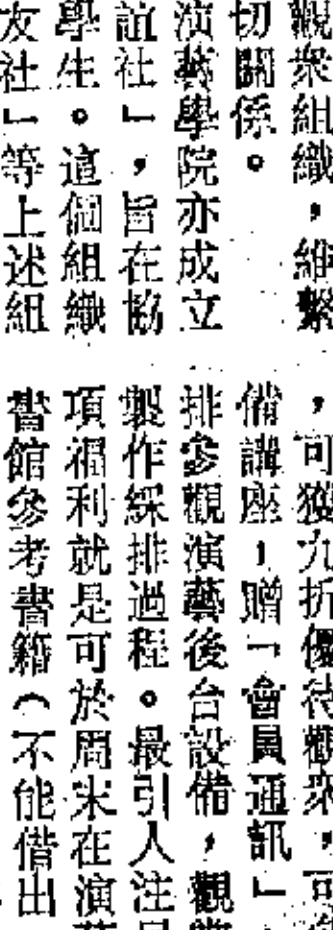 觀衆組織，維繫
切關係。
演藝學院亦成立
誼社」，旨在協
學生。這個組織
友社」等上述組
，可獲九折優待觀衆，可
備講座！贈「會員通訊」
排參觀演藝後台設備，觀
製作綵排過程。最引人注
項福利就是可於周末在演
書館參考書籍（不能借出